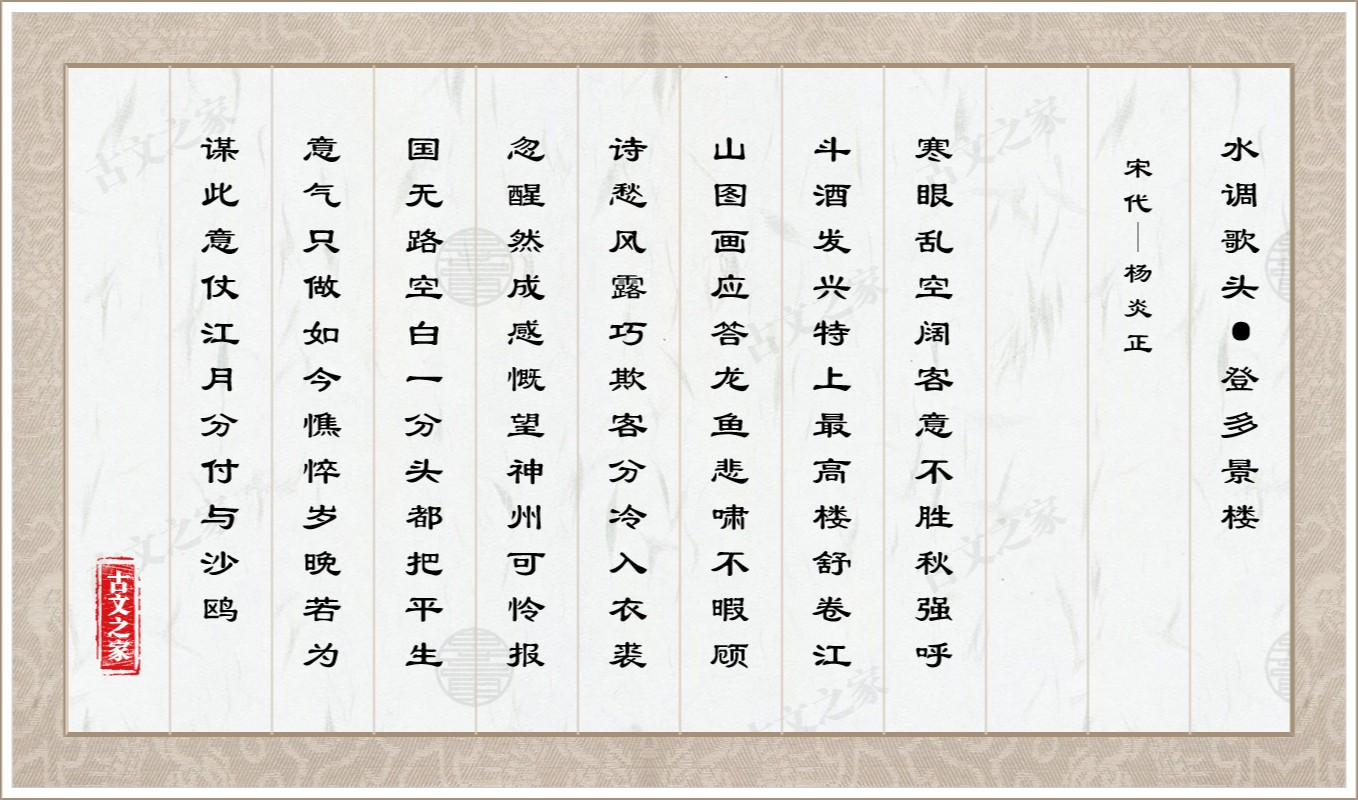 水调歌头●登多景楼
宋代—杨炎正
寒眼乱空阔客意不胜秋强呼
斗酒发兴特上最高楼舒卷江
山图画应答龙鱼悲啸不暇顾
诗愁风露巧欺客分冷入衣裘
忽醒然成感慨望神州可怜报
国无路空白一分头都把平生
意气只做如今憔悴岁晚若为
谋此意仗江月分付与沙鸥
古文之家